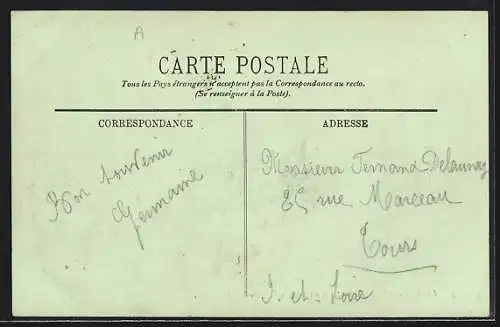 A
CARTE POSTALE
Tous les Pays étrangers n'acceptent pas la Correspondance au recto.
(Se renseigner à la Poste).
CORRESPONDANCE
Bon souvenir
Germaine
ADRESSE
Monsieur Fernand Delaunay
25 rue Marceau
Tours
I. et. Loire